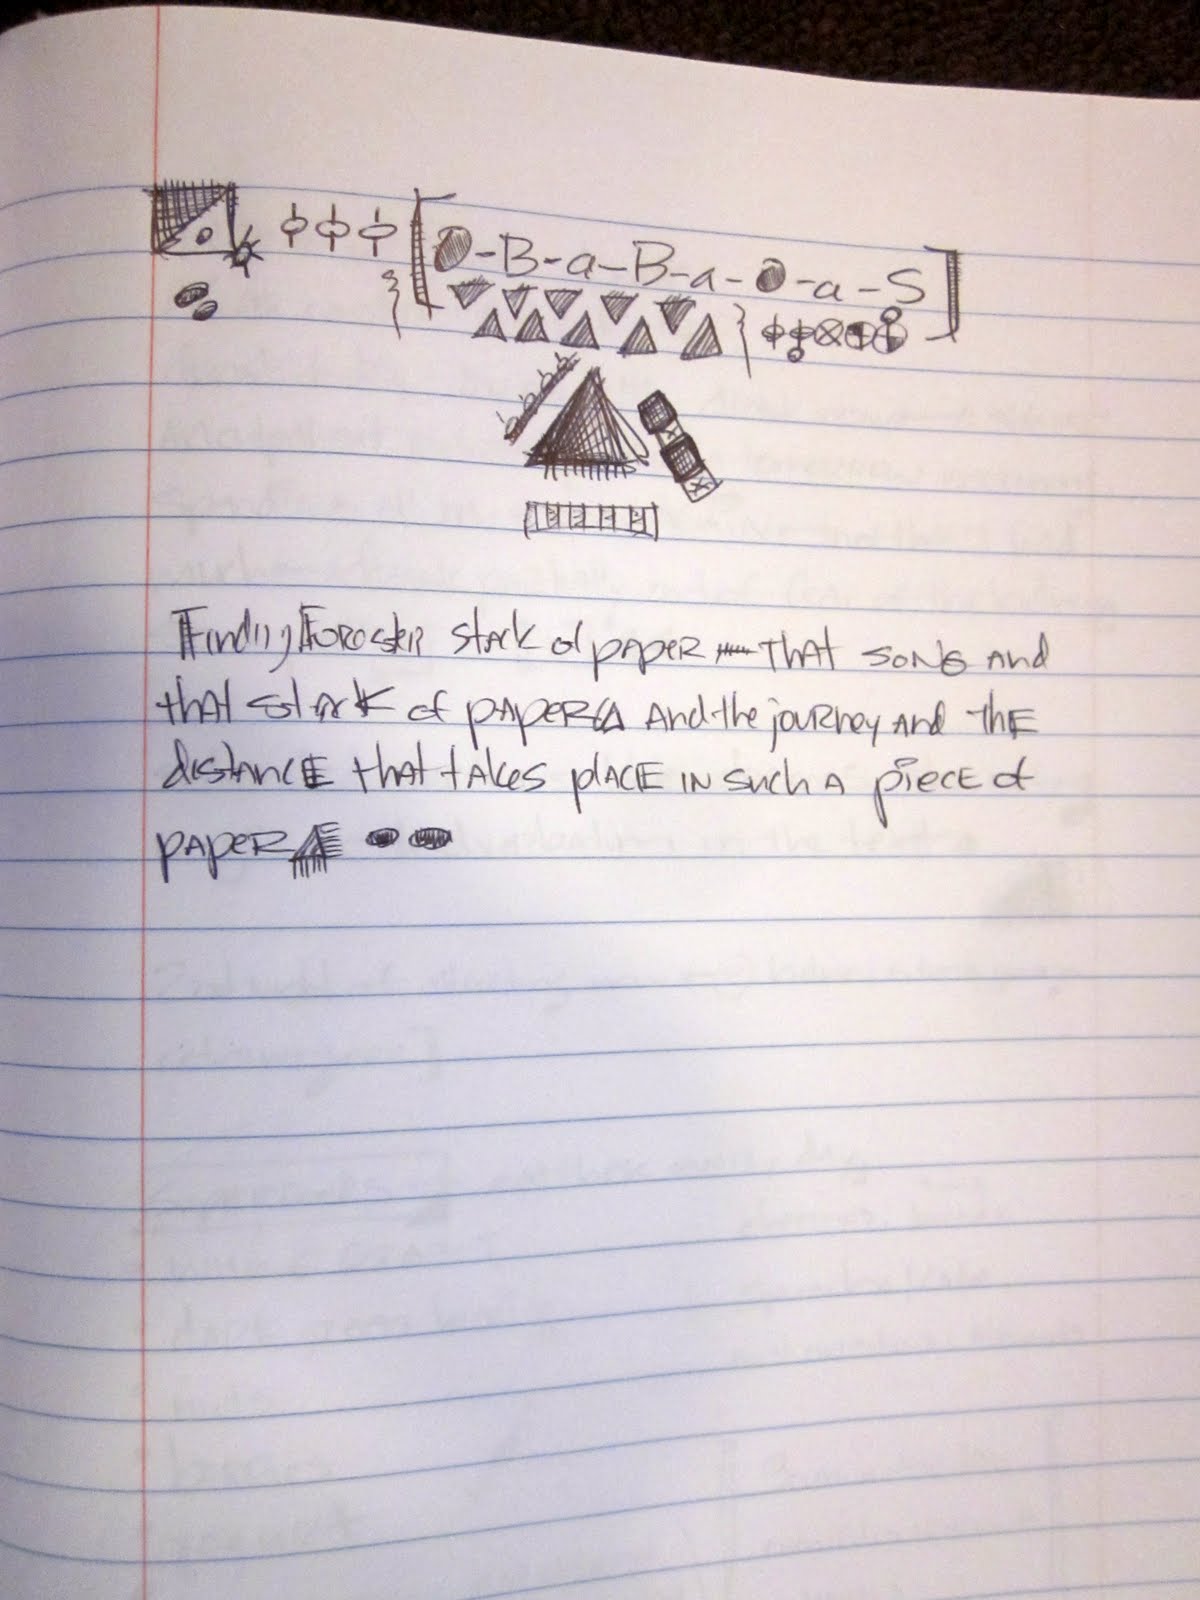 O-B-a-B-a-O-a-S
Finding Forrester stack of paper — that song and
that stack of paper and the journey and the
distance that takes place in such a piece of
paper